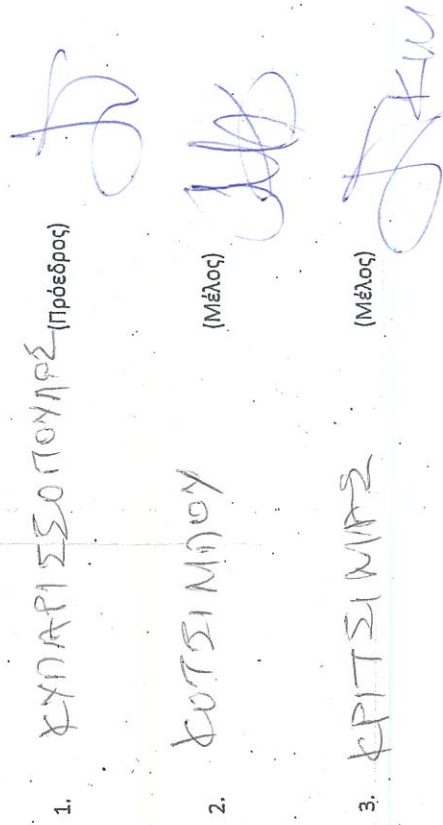 1. ΚΥΠΑΡΙΣΣΟΠΟΥΛΟΣ (Πρόεδρος)
2. ΚΟΤΣΙΜΠΟΥ (Μέλος)
3. ΚΡΙΤΣΙΝΙΑΣ (Μέλος)